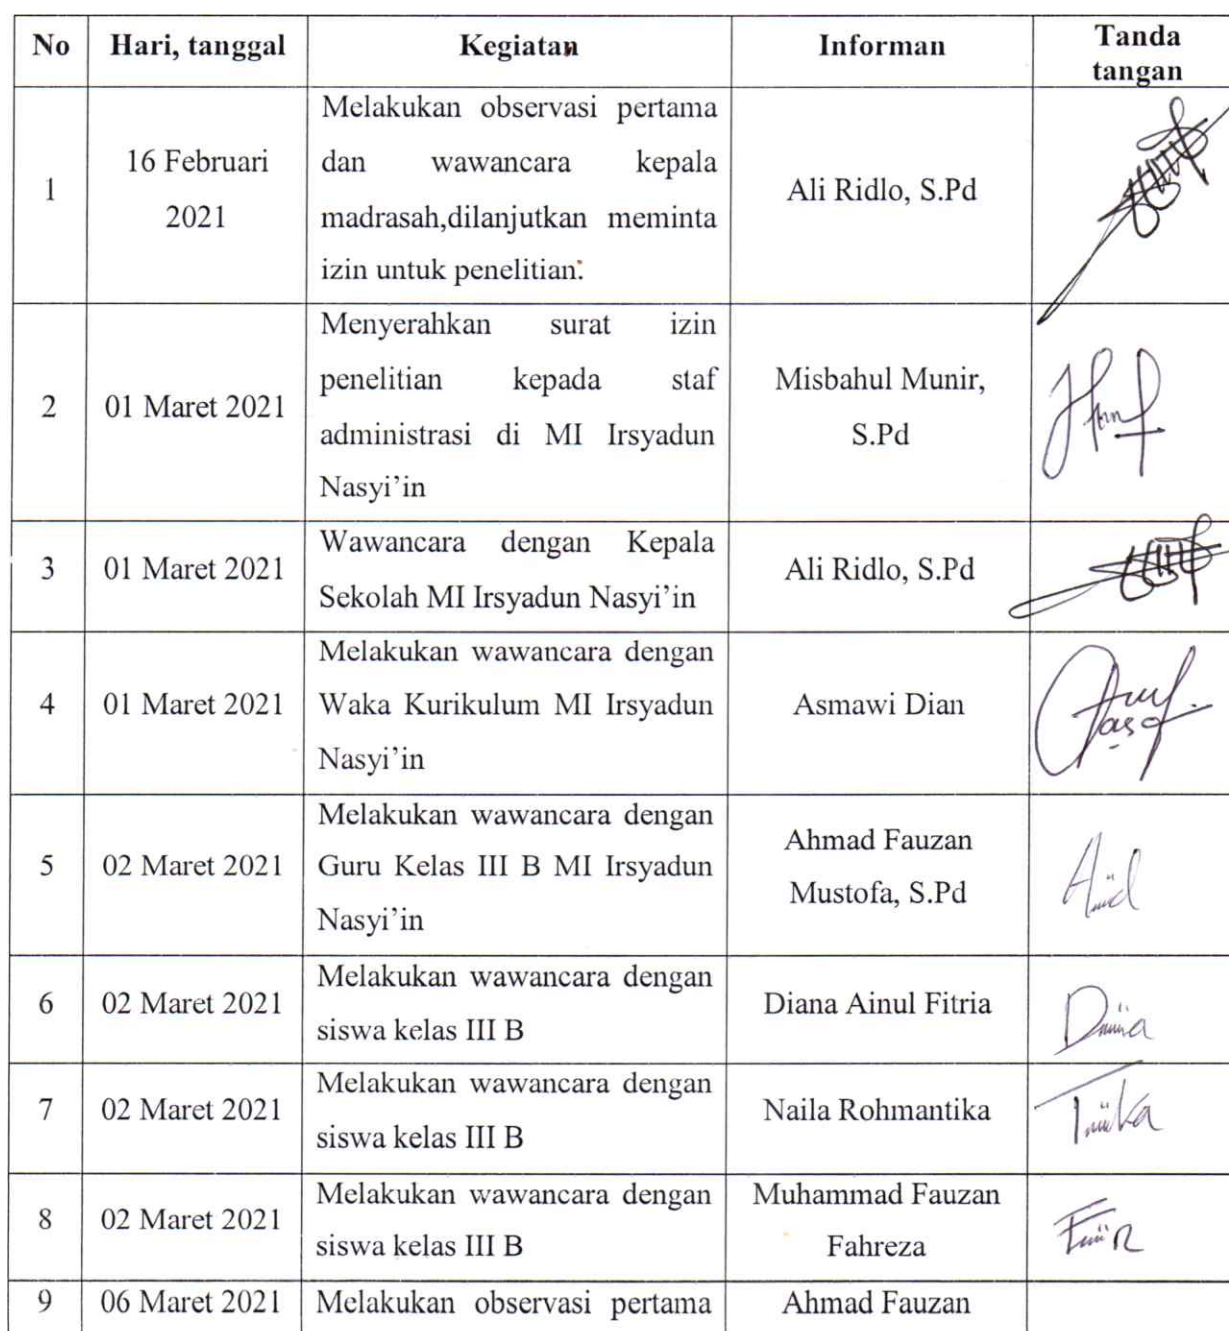 No Hari, tanggal Kegiatan Informan Tanda
tangan
1 16 Februari
2021
Melakukan observasi pertama
dan wawancara kepala
madrasah,dilanjutkan meminta
izin untuk penelitian.
Ali Ridlo, S.Pd
2 01 Maret 2021
Menyerahkan surat izin
penelitian kepada staf
administrasi di MI Irsyadun
Nasyi’in
Misbahul Munir,
S.Pd
3 01 Maret 2021
Wawancara dengan Kepala
Sekolah MI Irsyadun Nasyi’in
Ali Ridlo, S.Pd
4 01 Maret 2021
Melakukan wawancara dengan
Waka Kurikulum MI Irsyadun
Nasyi’in
Asmawi Dian
5 02 Maret 2021
Melakukan wawancara dengan
Guru Kelas III B MI Irsyadun
Nasyi’in
Ahmad Fauzan
Mustofa, S.Pd
6 02 Maret 2021
Melakukan wawancara dengan
siswa kelas III B
Diana Ainul Fitria
7 02 Maret 2021
Melakukan wawancara dengan
siswa kelas III B
Naila Rohmantika
8 02 Maret 2021
Melakukan wawancara dengan
siswa kelas III B
Muhammad Fauzan
Fahreza
9 06 Maret 2021 Melakukan observasi pertama Ahmad Fauzan